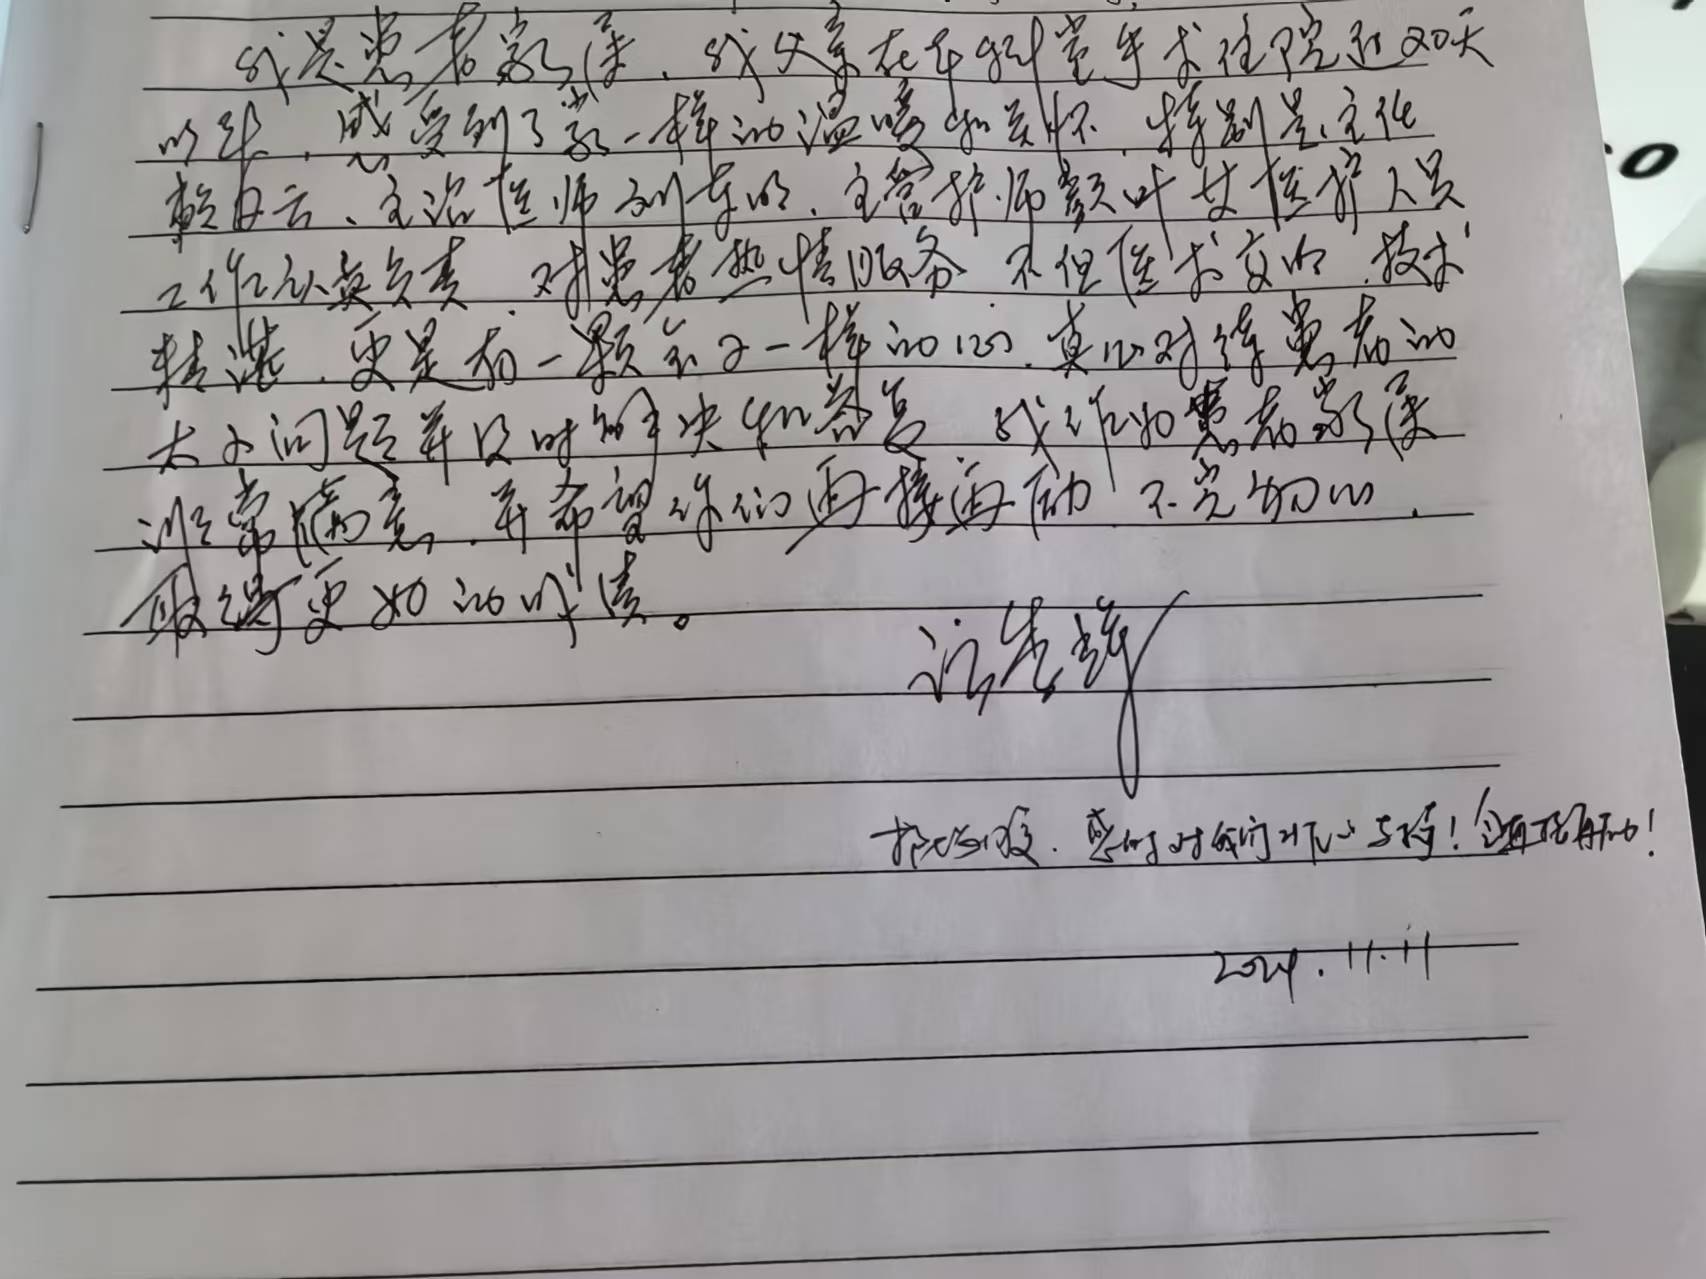 我是患者家属、我父亲在年 堂手术住院近20天
以来、感受到了家一样的温暖和关怀、特别是主任
赖日云、主治医师刘东明、主管护师颜叶女医护人员
工作认真负责、对患者热情服务 不但医术高明、技术
精湛、更是有一颗亲人一样的心、真心对待患者的
大小问题并及时解决和答复 我作为患者家属
非常满意、并希望你们再接再励 不 、
取得更好的成绩。
感谢对我们 ！ 再接再励！
2024.11.11